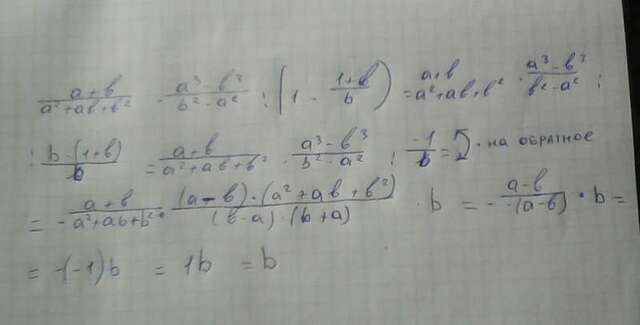 (a+b)/(a²+ab+b²) · (a³-b³)/(b²-a²) : (1 - (1+b)/b) = (a+b)/(a²+ab+b²) · (a³-b³)/(b²-a²) :
: (b-(1+b))/b = (a+b)/(a²+ab+b²) · (a³-b³)/(b²-a²) : (-1)/b = · на обратное
= - (a+b)/(a²+ab+b²) · ((a-b)·(a²+ab+b²))/((b-a)·(b+a)) · b = - (a-b)/(-(a-b)) · b =
= -(-1)b = 1b = b